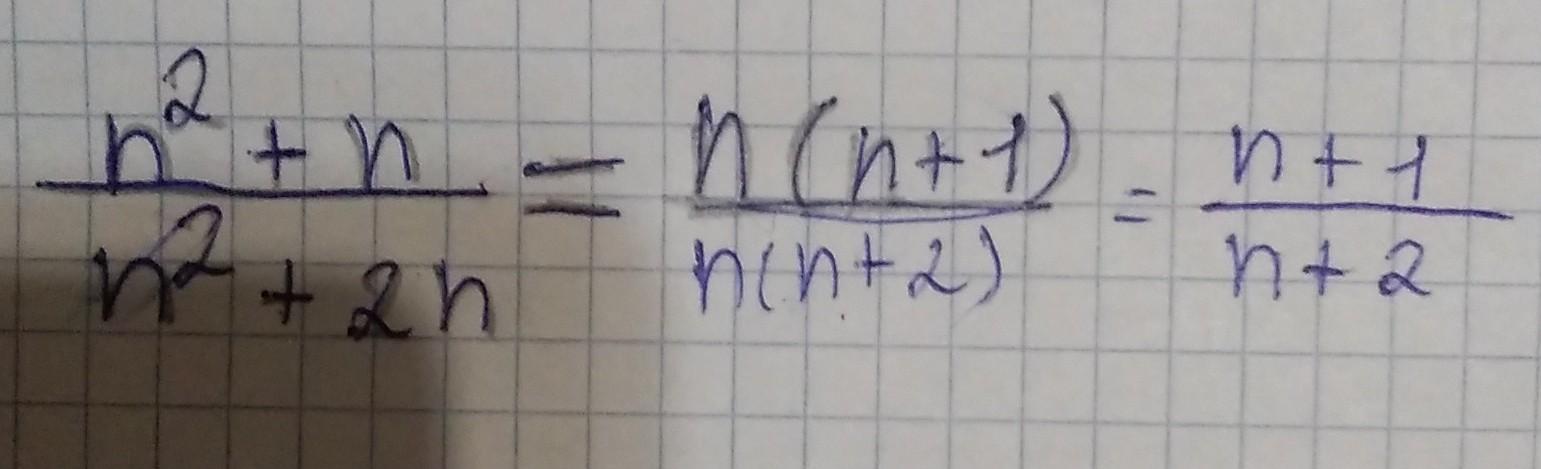 n² + n / n² + 2n = n(n+1) / n(n+2) = n+1 / n+2